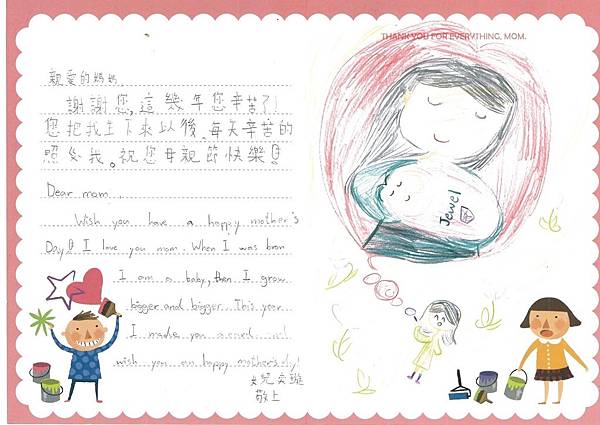 親愛的媽媽,
謝謝您,這幾年您辛苦了!
您把我生下來以後,每天辛苦的
照分我。祝您母親節快樂!
Dear mom...
Wish you have a happy mother's
Day! I love you mom. When I was bron
I am a baby, then I grow
bigger and bigger. This year
I made you a card and
wish you an happy mother's day!
女兒
敬上
THANK YOU FOR EVERYTHING, MOM.
Jewel